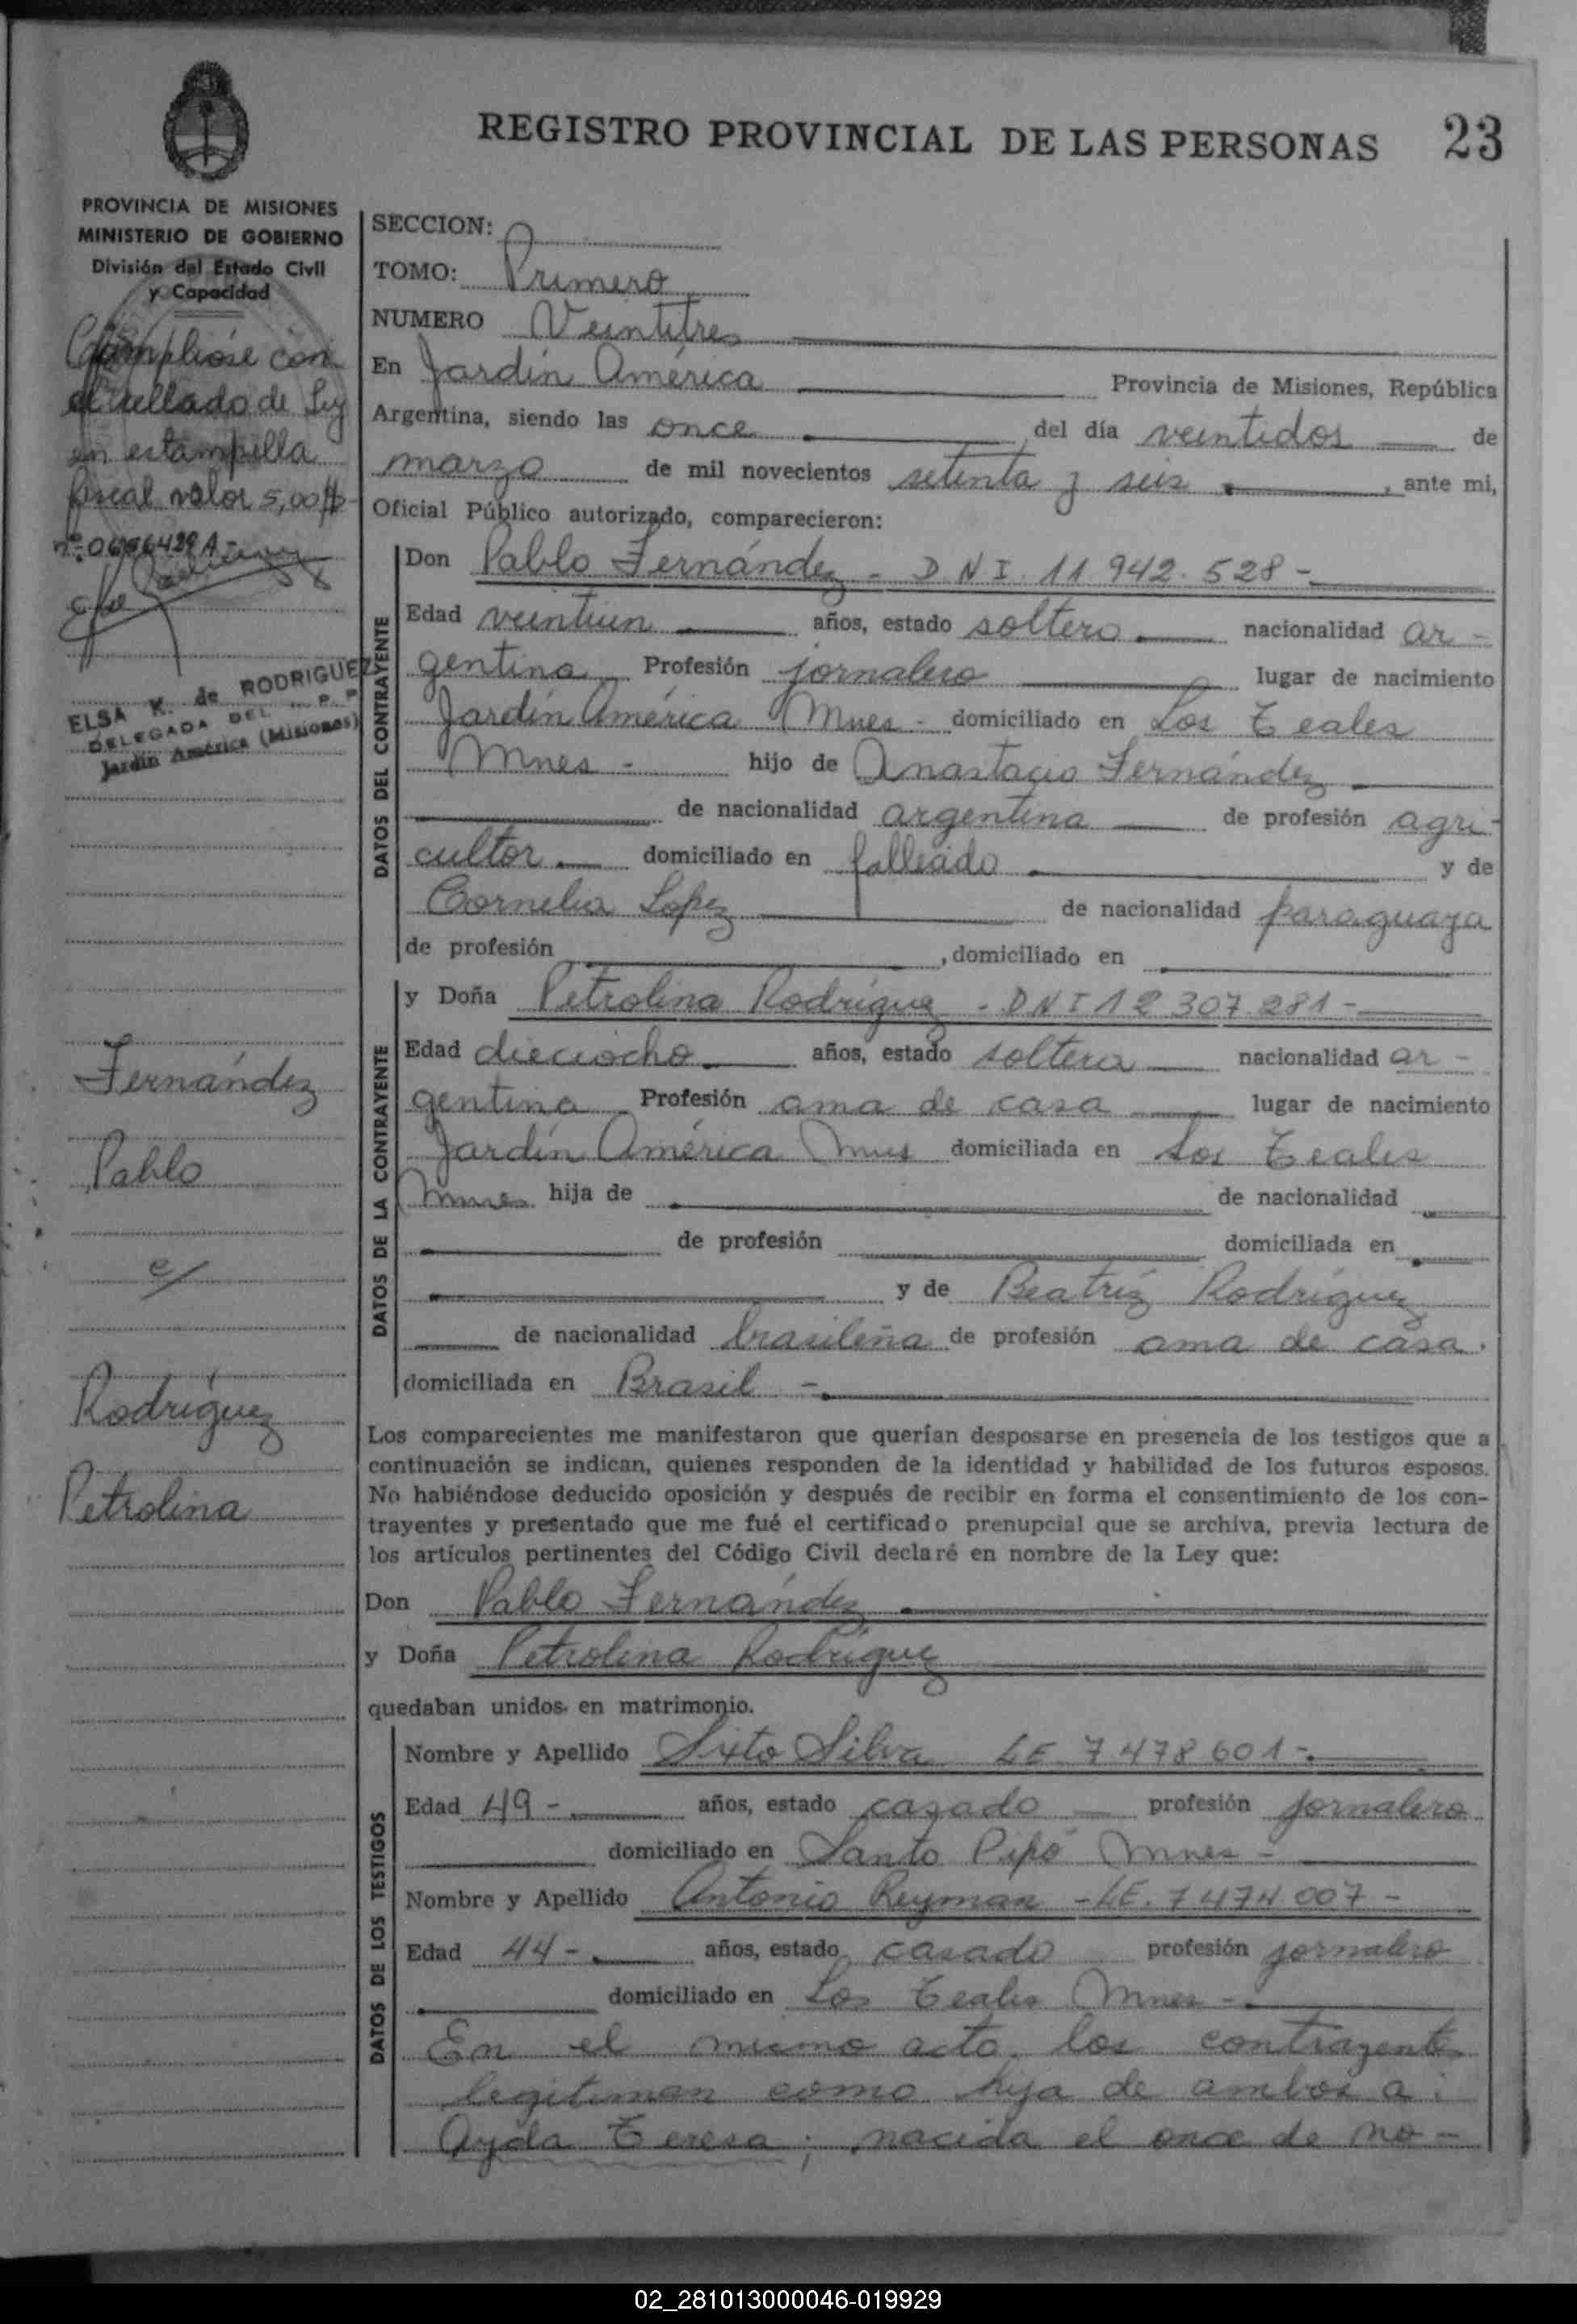 REGISTRO PROVINCIAL DE LAS PERSONAS 23
PROVINCIA DE MISIONES
MINISTERIO DE GOBIERNO
División del Estado Civil
y Capacidad
Cumplióse con
el sellado de Ley
en estampilla
fiscal valor 5,00
ELSA K. de RODRIGUEZ
DELEGADA DEL R. P. P.
Jardín América (Misiones)
Fernández
Pablo
c/
Rodríguez
Petrolina
SECCION:
TOMO: Primero
NUMERO Veintitres
En Jardín América Provincia de Misiones, República
Argentina, siendo las once del día veintidos de
marzo de mil novecientos setenta y seis, ante mi,
Oficial Público autorizado, comparecieron:
DATOS DEL CONTRAYENTE
Don Pablo Fernández - D N I. 11.942.528 -
Edad veintiun años, estado soltero nacionalidad ar-
gentina Profesión jornalero lugar de nacimiento
Jardín América Mnes - domiciliado en Los Teales
Mnes - hijo de Anastacio Fernández
de nacionalidad argentina de profesión agri-
cultor domiciliado en fallecido y de
Cornelia Lopez de nacionalidad paraguaya
de profesión , domiciliado en
DATOS DE LA CONTRAYENTE
y Doña Petrolina Rodríguez - D N I 12 307 281 -
Edad dieciocho años, estado soltera nacionalidad ar-
gentina Profesión ama de casa lugar de nacimiento
Jardín América Mnes domiciliada en Los Teales
Mnes hija de de nacionalidad
de profesión domiciliada en
y de Beatríz Rodríguez
de nacionalidad brasileña de profesión ama de casa.
domiciliada en Brasil -
Los comparecientes me manifestaron que querían desposarse en presencia de los testigos que a
continuación se indican, quienes responden de la identidad y habilidad de los futuros esposos.
No habiéndose deducido oposición y después de recibir en forma el consentimiento de los con-
trayentes y presentado que me fué el certificado prenupcial que se archiva, previa lectura de
los artículos pertinentes del Código Civil declaré en nombre de la Ley que:
Don Pablo Fernández
y Doña Petrolina Rodríguez
quedaban unidos en matrimonio.
DATOS DE LOS TESTIGOS
Nombre y Apellido Sixto Silva LE 7478601-
Edad 49 - años, estado casado profesión jornalero
domiciliado en Santo Pipó Mnes -
Nombre y Apellido Antonio Reyman - LE. 7474.007 -
Edad 44 - años, estado casado profesión jornalero
domiciliado en Los Teales Mnes -
En el mismo acto los contrayentes
legitiman como hija de ambos a:
Ayda Teresa; nacida el once de no-
02_281013000046-019929